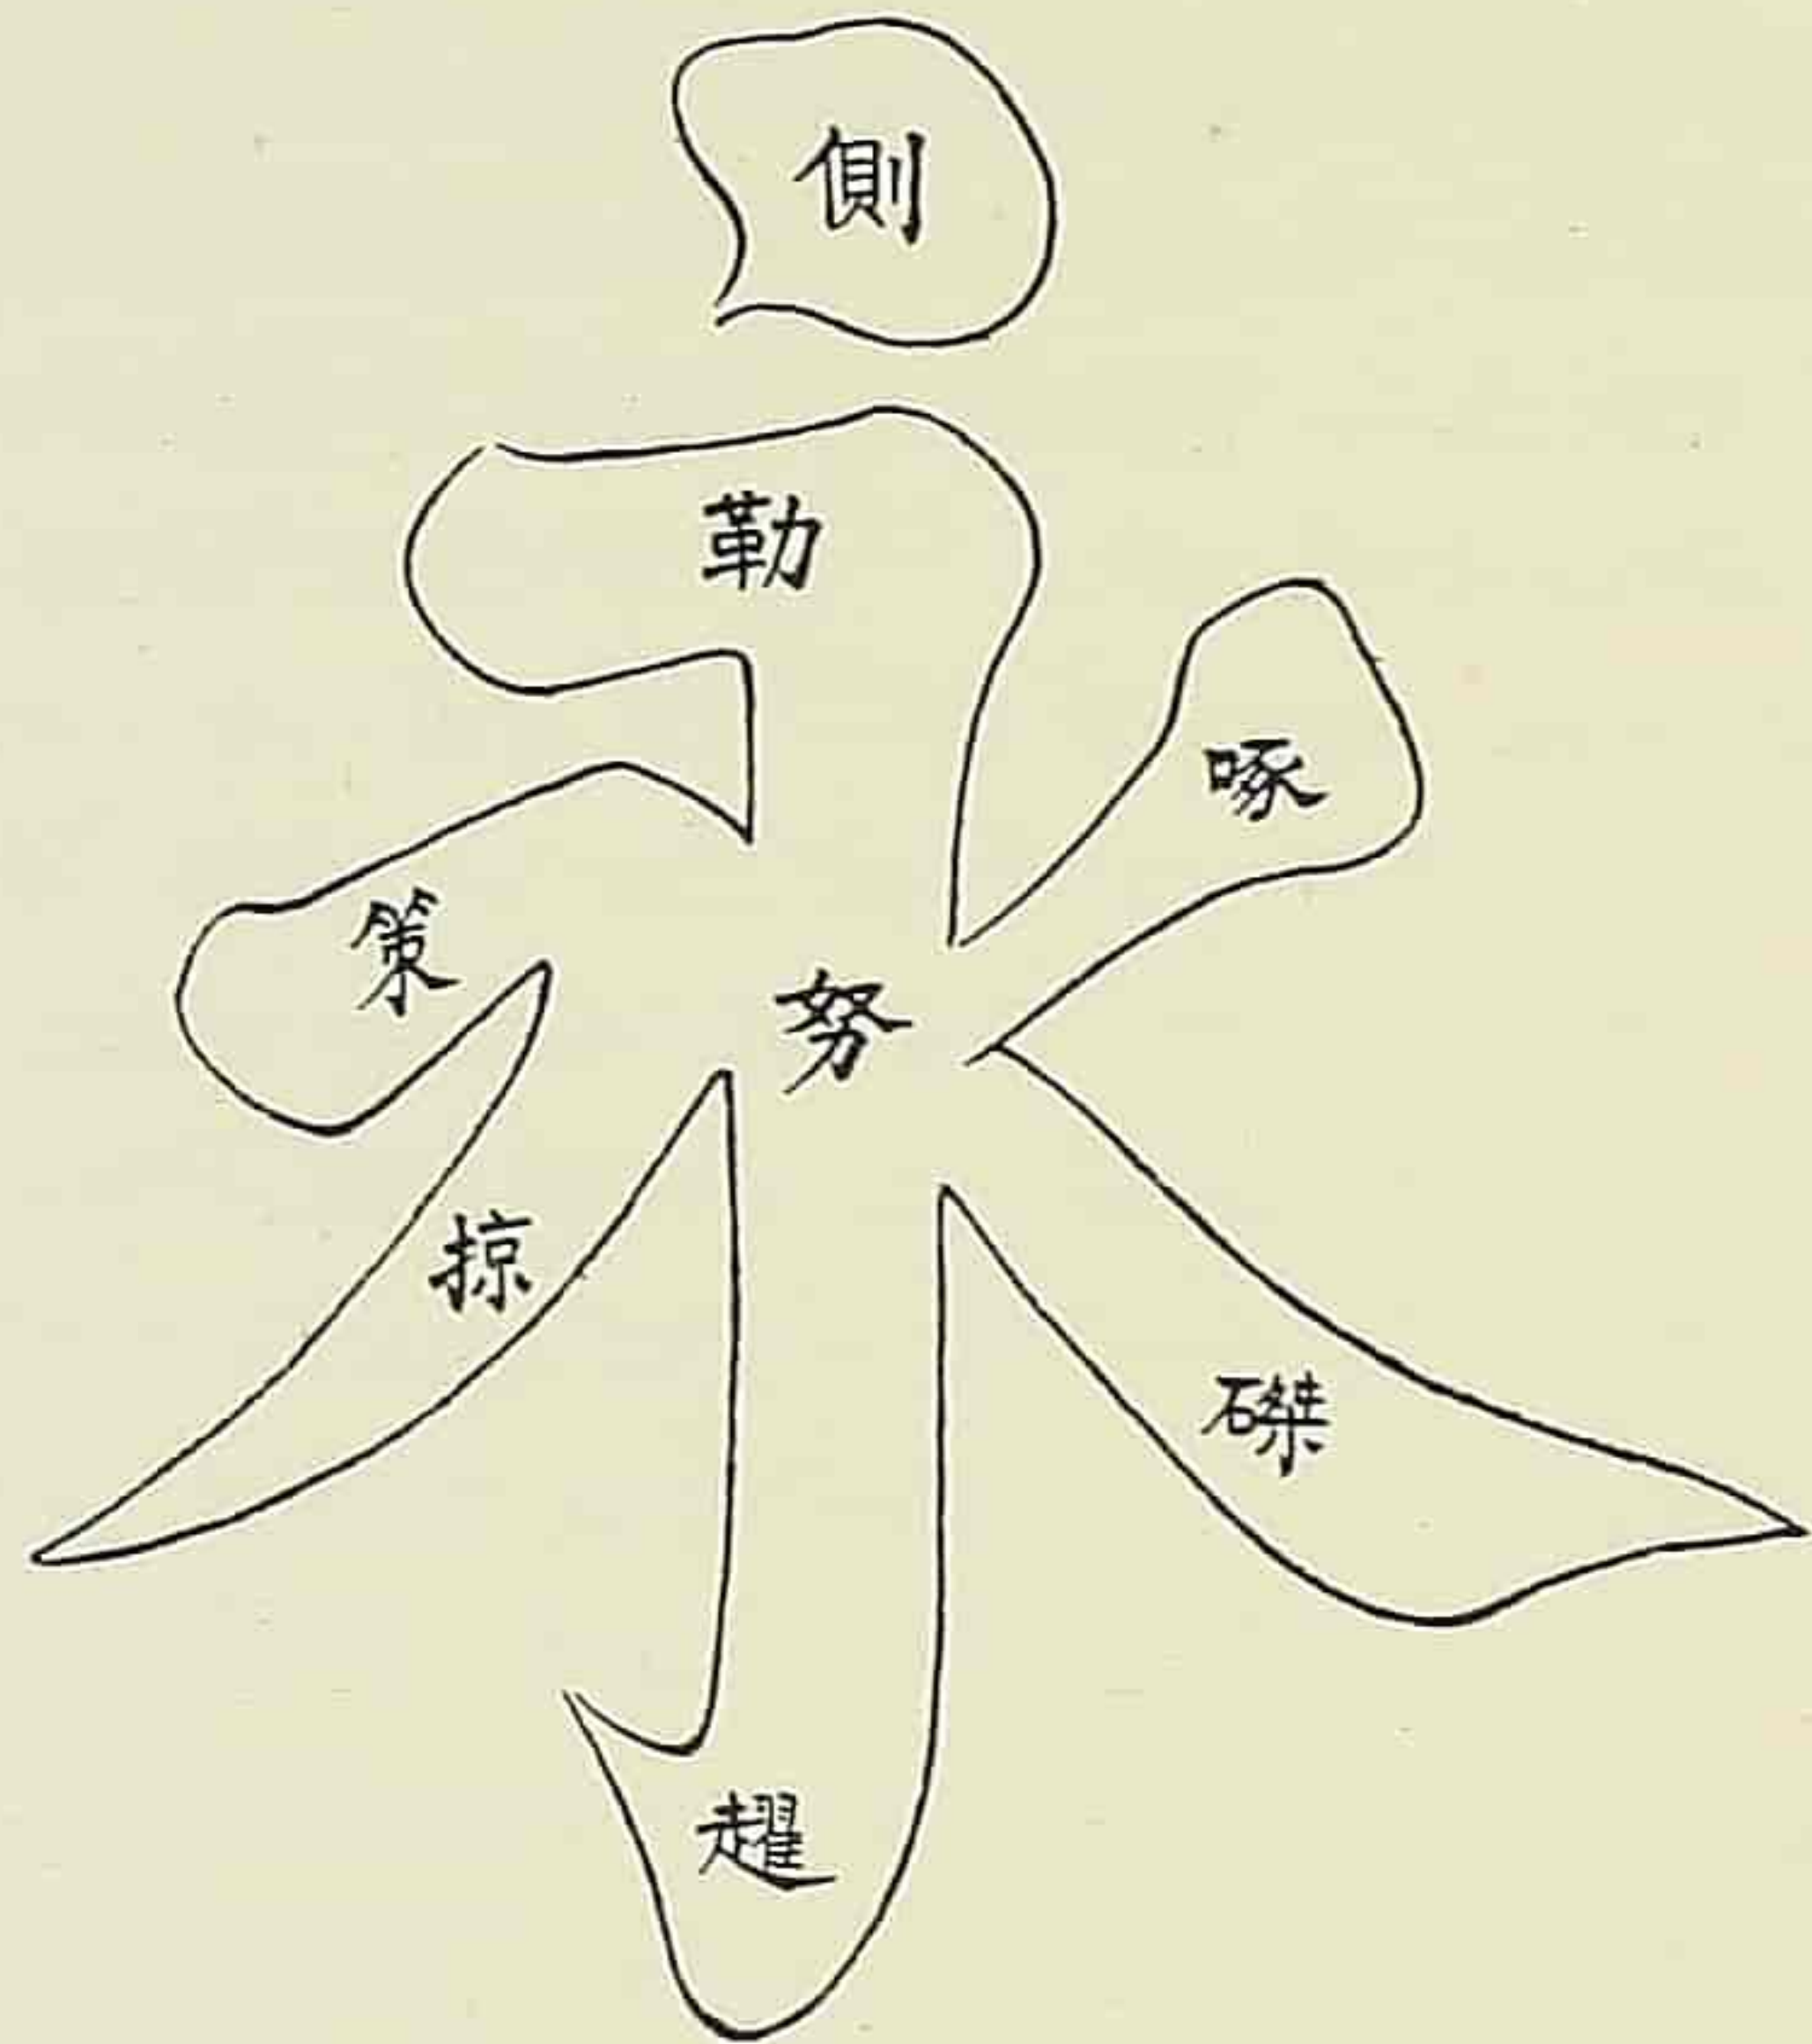 側
勒
啄
策
努
掠
磔
趯